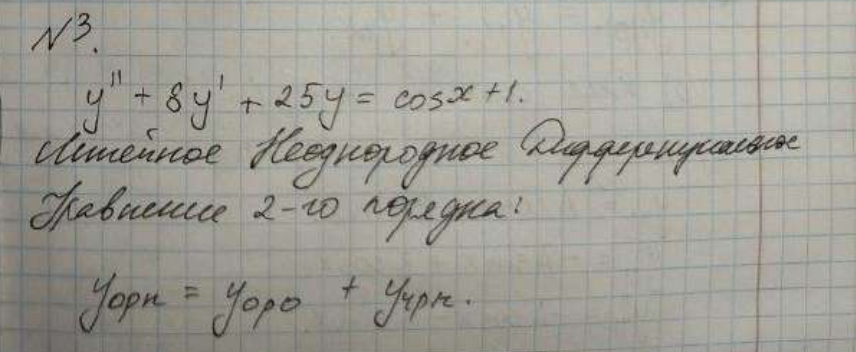 №3.
y'' + 8y' + 25y = cosx + 1.
Линейное Неоднородное Дифференциальное
Уравнение 2-го порядка:
yорн = yоро + yчрн.